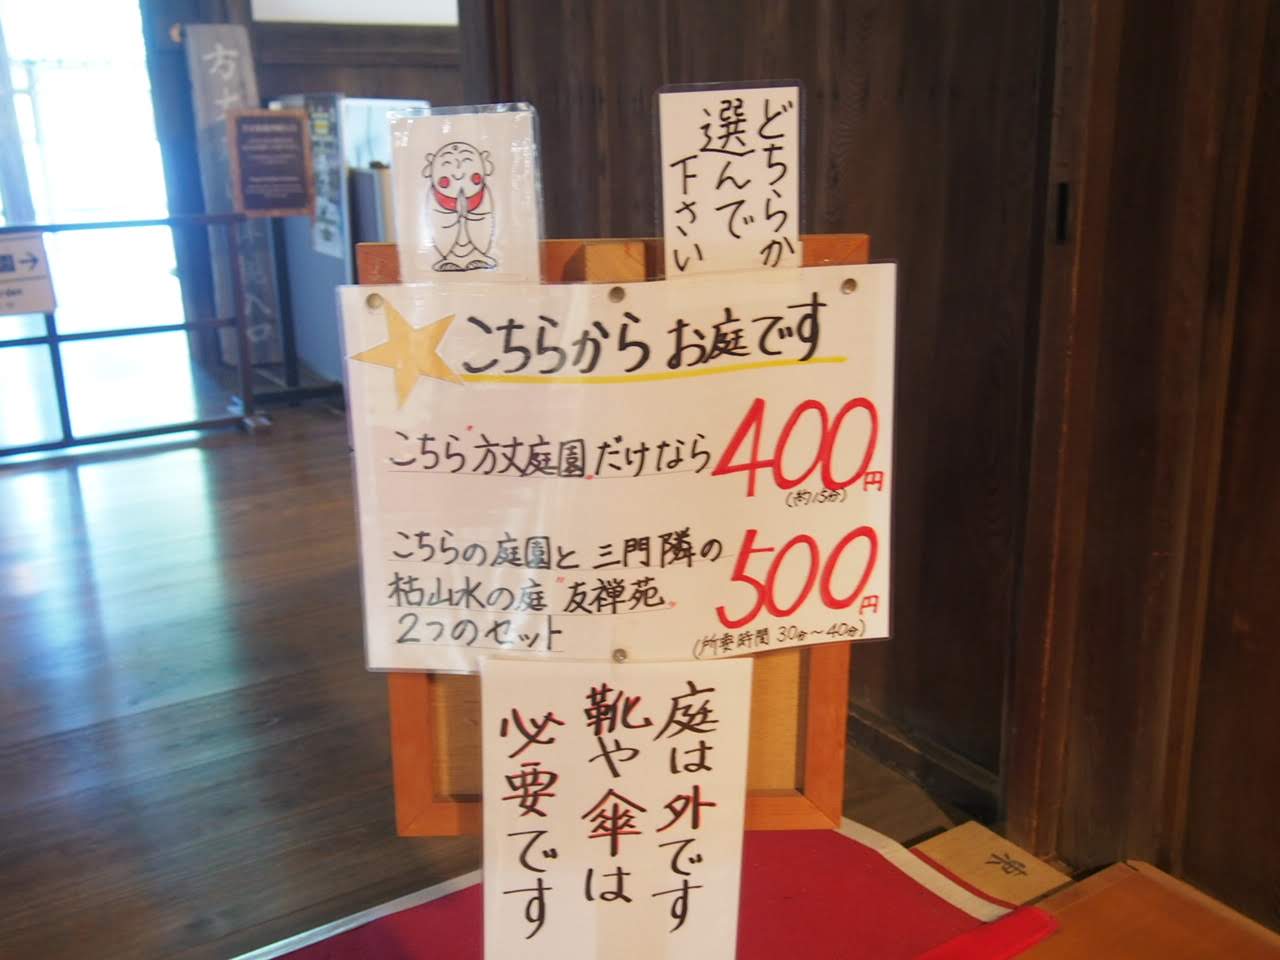 どちらか
選んで
下さい
こちらから お庭です
こちら"方丈庭園"だけなら 400円
(約15分)
こちらの庭園と 三門隣の
枯山水の庭"友禅苑"
2つのセット
500円
(所要時間 30分～40分)
庭は外です
靴や傘は
必要です
園→
方丈